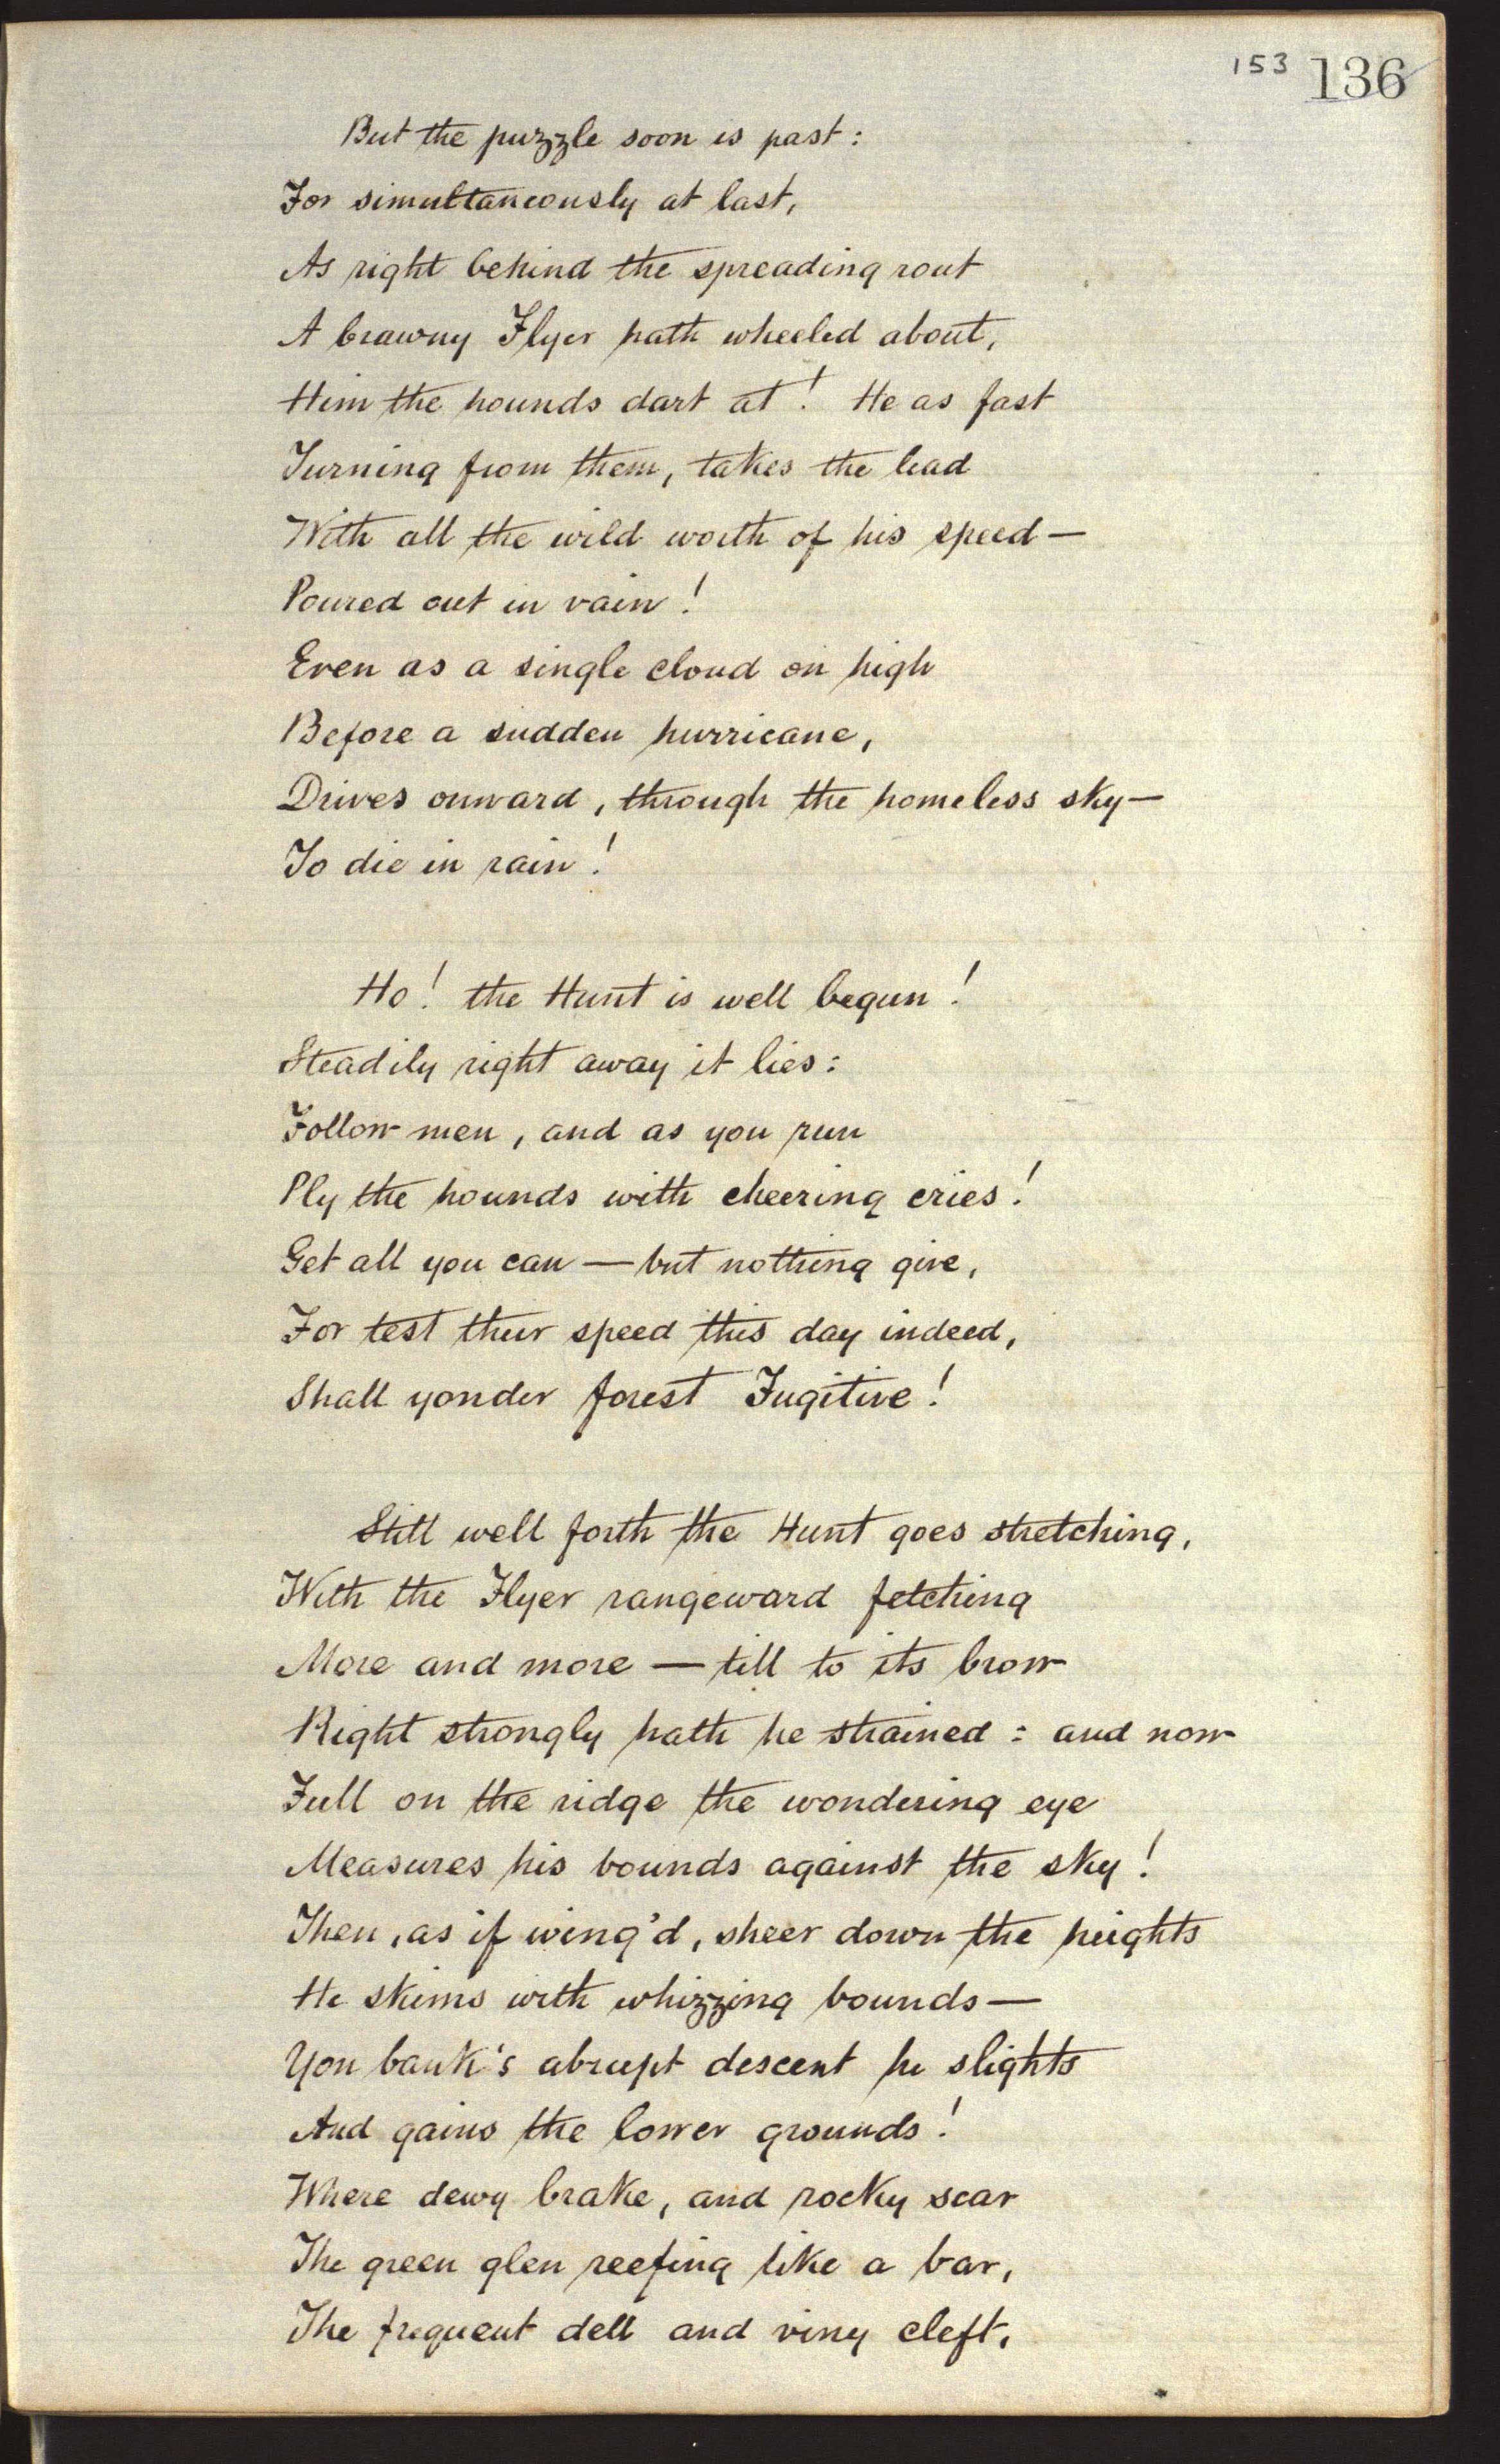 153 136
But the puzzle soon is past:
For simultaneously at last,
As right behind the spreading rout
A brawny Flyer hath wheeled about,
Him the hounds dart at! He as fast
Turning from them, takes the lead
With all the wild worth of his speed—
Poured out in vain!
Even as a single cloud on high
Before a sudden hurricane,
Drives onward, through the homeless sky—
To die in rain!
Ho! the Hunt is well begun!
Steadily right away it lies:
Follow men, and as you run
Ply the hounds with cheering cries!
Get all you can — but nothing give,
For test their speed this day indeed,
Shall yonder forest Fugitive!
Still well forth the Hunt goes stretching,
With the Flyer rangeward fetching
More and more — till to its brow
Right strongly hath he strained: and now
Full on the ridge the wondering eye
Measures his bounds against the sky!
Then, as if wing'd, sheer down the heights
He skims with whizzing bounds—
Yon bank's abrupt descent he slights
And gains the lower grounds!
Where dewy brake, and rocky scar
The green glen reefing like a bar,
The frequent dell and viny cleft,